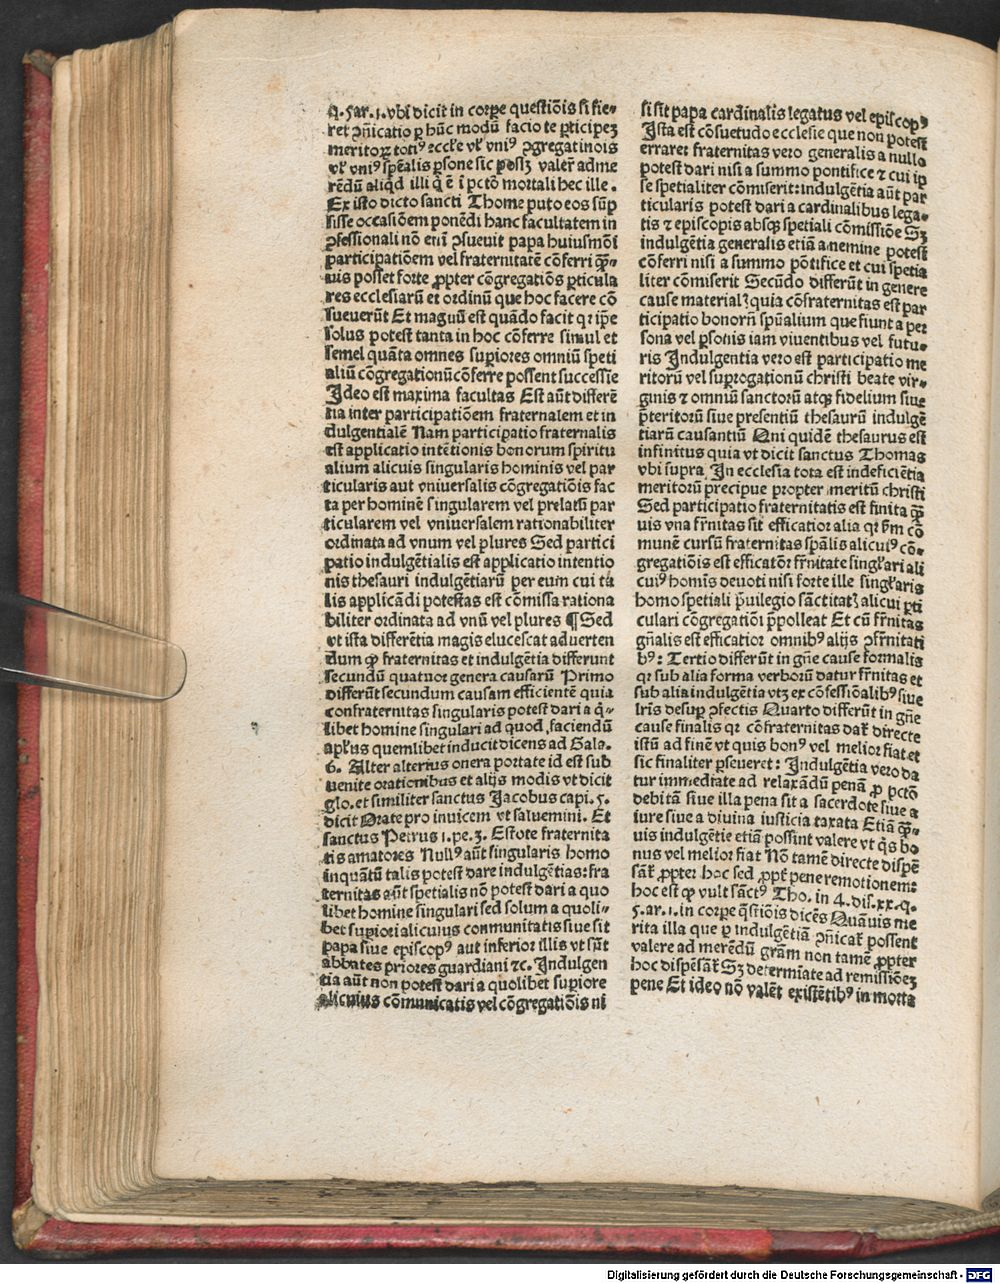 q. 5 ar. 1. vbi dicit in corpe questiõis si fie-
ret ꝯñicatio ꝑ hũc modũ facio te ꝑticipeꝫ
meritoꝝ totiꝰ eccłe vł vniꝰ ꝯgregatinois
vł vniꝰ spẽalis ꝑsone sic posſꝫ valeř adme
rẽdũ aliqd illi q̃ ẽ ĩ pctõ mortali hec ille.
Ex isto dicto sancti Thome puto eos sũp
sisse occasiõem ponẽdi hanc facultatem in
ꝯfessionali nõ eni ꝯsueuit papa huiusmõi
participatiõem vel fraternitatẽ cõferri qꝫ̃-
uis posset forte ꝓpter cõgregatiõs ꝑticula
res ecclesiarũ et ordinũ que hoc facere cõ
sueuerũt Et magnũ est quãdo facit qꝛ ip̃e
solus potest tanta in hoc cõferre simul et
semel quãta omnes supiores omniũ speti
aliũ cõgregationũ cõferre possent successie
Ideo est maxima facultas Est aũt differẽ
tia inter participatiõem fraternalem et in
dulgentialẽ Nam participatio fraternalis
est applicatio intẽtionis bonorum spiritu
alium alicuis singularis hominis vel par
ticularis aut vniuersalis cõgregatiõis fac
ta per hominẽ singularem vel prelatũ par
ticularem vel vniuersalem rationabiliter
ordinata ad vnum vel plures Sed partici
patio indulgẽtialis est applicatio intentio
nis thesauri indulgẽtiarũ per eum cui ta
lis applicãdi potestas est cõmissa rationa
biliter ordinata ad vnũ vel plures ¶ Sed
vt ista differẽtia magis elucescat aduerten
dum ꝙ fraternitas et indulgẽtia differunt
secundũ quatuor genera causarũ Primo
differũt secundum causam efficientẽ quia
confraternitas singularis potest dari a q̃-
libet homine singulari ad quod faciendũ
apłus quemlibet inducit dicens ad Gala.
6. Alter alterius onera portate id est sub
uenite orationibus et alijs modis vt dicit
glo. et similiter sanctus Jacobus capi. 5.
dicit Orate pro inuicem vt saluemini. Et
sanctus Petrus 1. pe. 3. Estote fraternita
tis amatores Nullꝰ aũt singularis homo
inquãtũ talis potest dare indulgẽtias: fra
ternitas aũt spetialis nõ potest dari a quo
libet homine singulari sed solum a quoli-
bet supiori alicuius communitatis siue sit
papa siue episcopꝰ aut inferior illis vt sũt
abbates priores guardiani ⁊c. Indulgen
tia aũt non potest dari a quolibet supiore
alicuius cõmunicatis vel cõgregatiõis ni
si sit papa cardinalis legatus vel episcopꝰ
Ista est cõsuetudo ecclesie que non potest
errare: fraternitas vero generalis a nullo
potest dari nisi a summo pontifice ⁊ cui ip
se spetialiter cõmiserit: indulgẽtia aũt par
ticularis potest dari a cardinalibus lega-
tis ⁊ episcopis absqꝫ spetiali cõmissiõe Sꝫ
indulgẽtia generalis etiã a nemine potest
cõferri nisi a summo põtifice et cui spetia
liter cõmiserit Secũdo differũt in genere
cause materialꝭ quia cõfraternitas est par
ticipatio bonorũ spũalium que fiunt a per
sona vel ꝑsonis iam viuentibus vel futu-
ris Indulgentia vero est participatio me
ritorũ vel suprogationũ christi beate vir-
ginis ⁊ omniũ sanctorũ atqꝫ fidelium siue
p̃teritorũ siue presentiũ thesaurũ indulgẽ
tiarũ causantiũ Qui quidẽ thesaurus est
infinitus quia vt dicit sanctus Thomas
vbi supra In ecclesia tota est indeficiẽtia
meritorũ precipue propter meritũ christi
Sed participatio fraternitatis est finita qꝫ̃
uis vna fr̃nitas sit efficatior alia qꝛ s̃m cõ
munẽ cursũ fraternitas spãlis alicuiꝰ cõ-
gregatiõis est efficatõr fr̃nitate singłari ali
cuiꝰ homĩs deuoti nisi forte ille singłaris
homo spetiali p̃uilegio sãctitatꝭ alicui ꝑti
culari cõgregatiõi p̃polleat Et cũ fr̃nitas
gñalis est efficatior omnibꝰ alijs ꝯfr̃nitati
bꝰ: Tertio differũt in gñe cause formalis
qꝛ sub alia forma verborũ datur fr̃nitas et
sub alia indulgẽtia vtꝫ ex cõfessiõalibꝰ siue
lr̃is desuꝑ ꝯfectis Quarto differũt in gñe
cause finalis qꝛ cõfraternitas dař directe
istũ ad finẽ vt quis bonꝰ vel melior fiat et
sic finaliter ꝑseueret: Indulgẽtia vero da
tur immediate ad relaxãdũ penã ꝓ pctõ
debitã siue illa pena sit a sacerdote siue a
iure siue a diuina iusticia taxata Etiã qꝫ̃-
uis indulgẽtie etiã possint valere vt q̃s bo
nus vel melior fiat Nõ tamẽ directe dispẽ
sař ꝓpter hoc sed ꝓpt̃ pene remotionem:
hoc est ꝙ vult sãctꝰ Tho. in 4. dis. xx. q.
5. ar. 1. in corpe q̃stiõis dicẽs Quãuis me
rita illa que ꝑ indulgẽtiã ꝯñicař possent
valere ad merẽdũ grãm non tamẽ ꝓpter
hoc dispẽsař Sꝫ determĩate ad remissiõeꝫ
pene Et ideo nõ valẽt existẽtibꝰ in morta
Digitalisierung gefördert durch die Deutsche Forschungsgemeinschaft - DFG